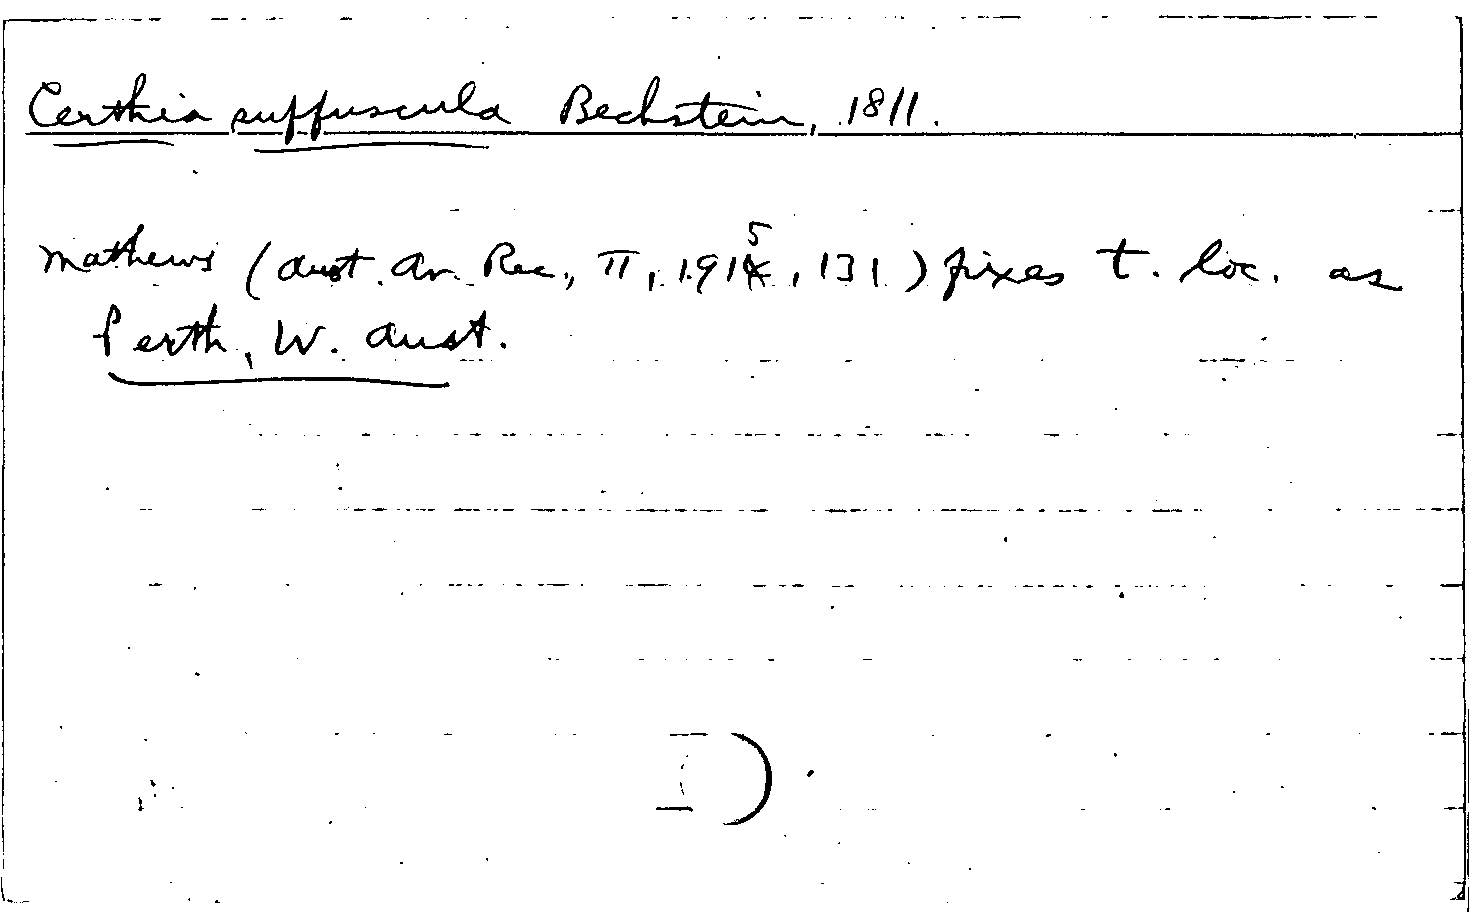 Certhia suffuscula Bechstein, 1811.
Mathews (Aust. Av. Rec., II, 1915, 131) fixes t. loc. as
Perth, W. Aust.